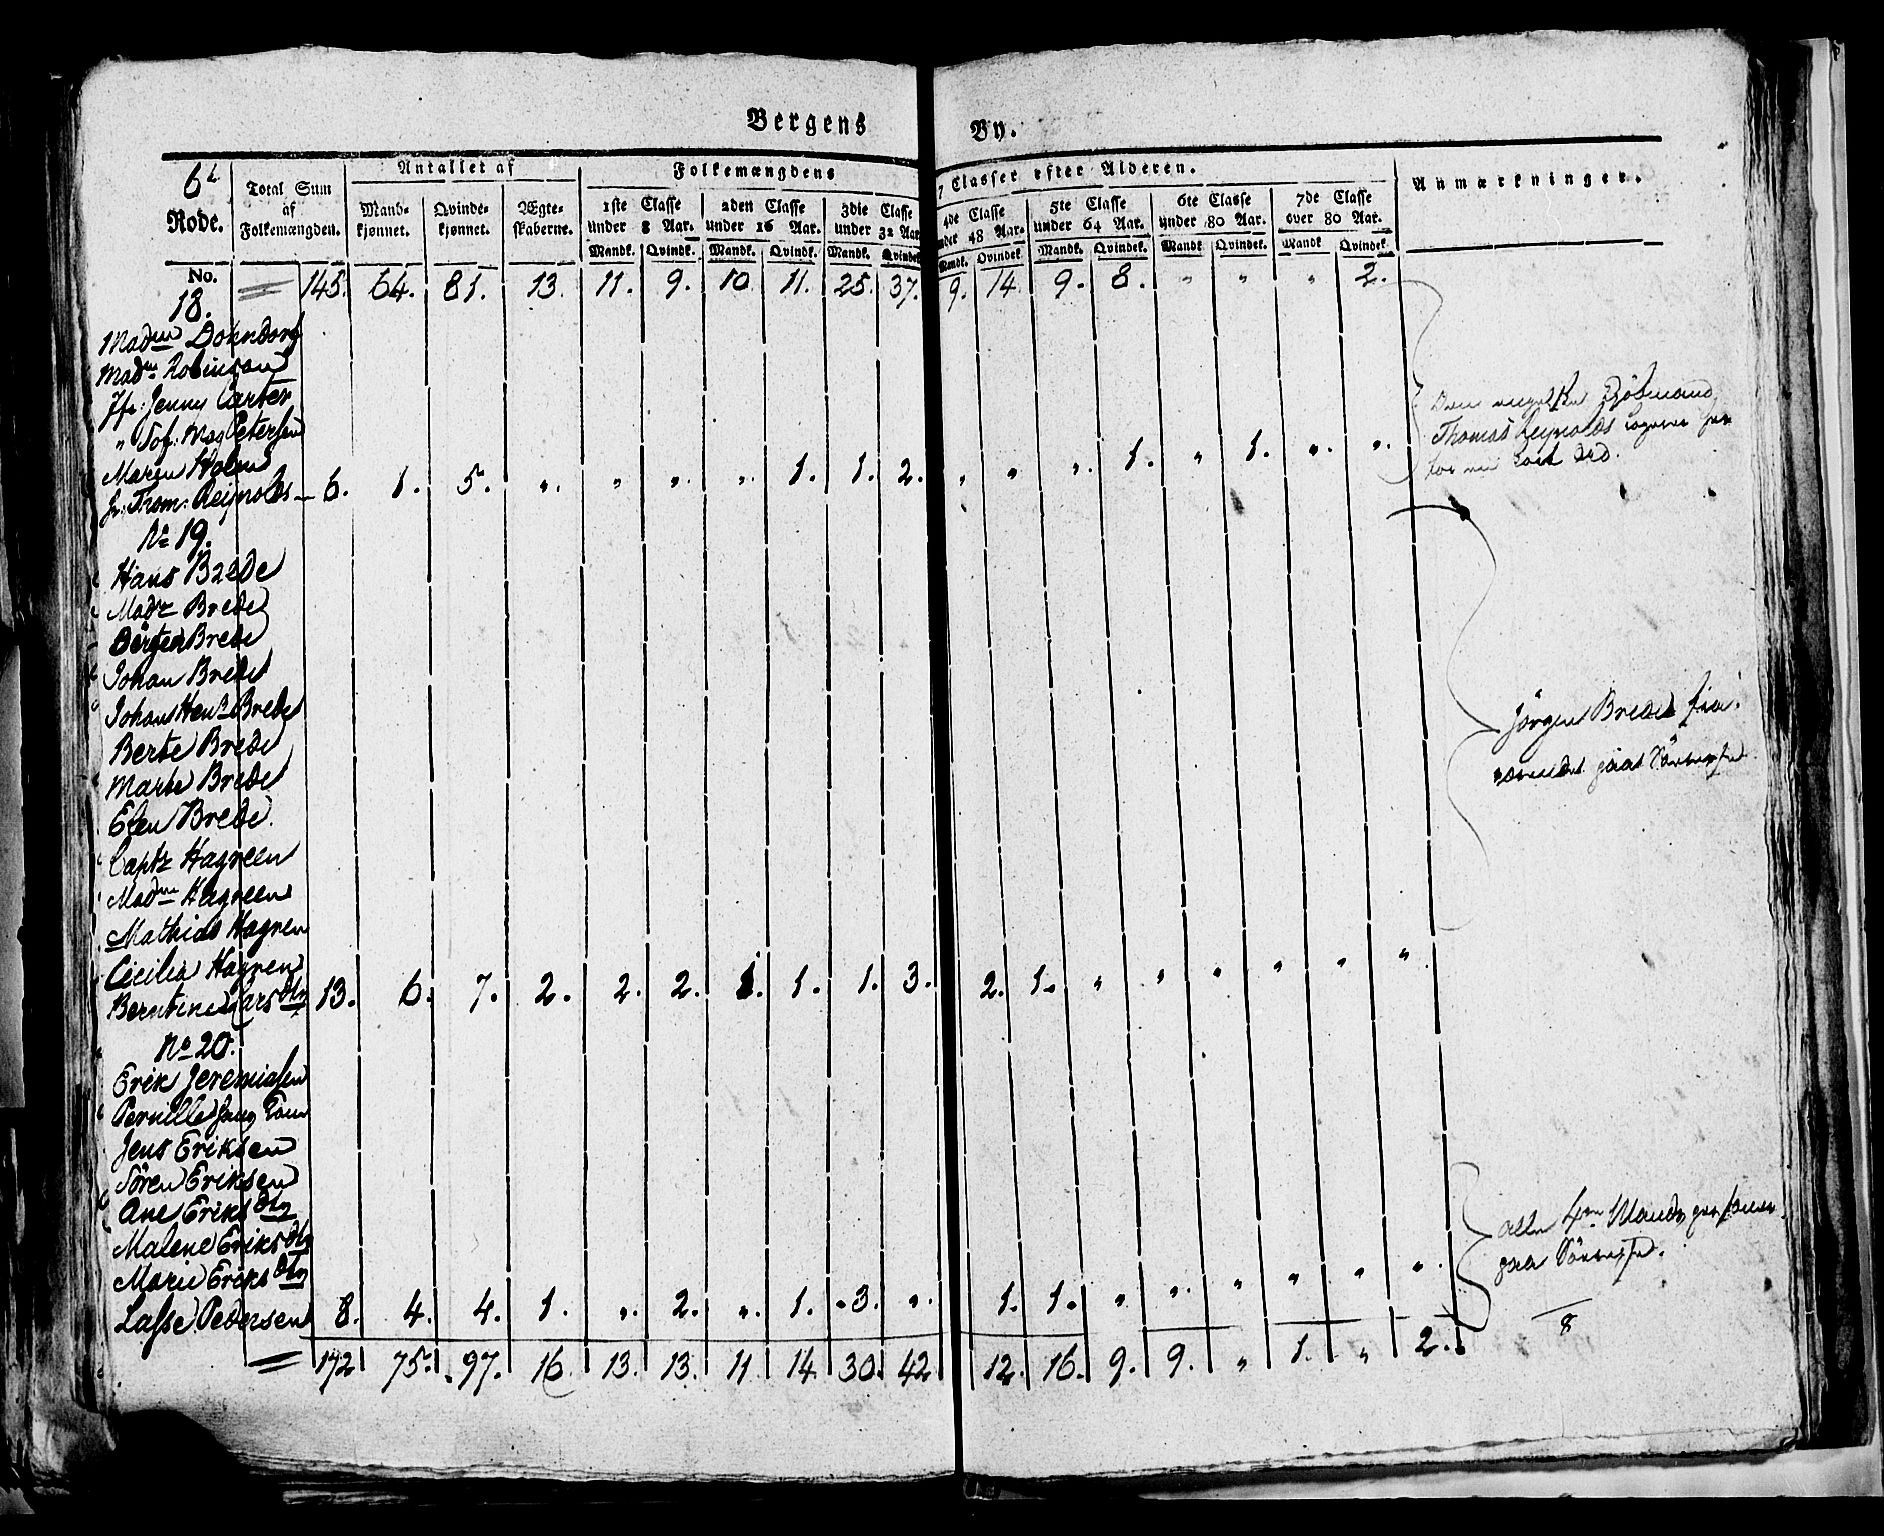 Bergens By.
6t Rode.
Total Sum af Folkemængden.
Antallet af
Mandkjønnet. Qvindekjønnet. Ægteskaberne.
Folkemængdens 7 Classer efter Alderen.
1ste Classe under 8 Aar. 2den Classe under 16 Aar. 3die Classe under 32 Aar 4de Classe under 48 Aar. 5te Classe under 64 Aar. 6te Classe under 80 Aar. 7de Classe over 80 Aar.
Mandk. Qvindek. Mandk. Qvindk. Mandk. Qvindek. Mandk. Qvindek Mandk. Qvindek. Mandk Qvindek. Mandk Qvindek.
Anmærkninger.
No.
145. 64. 81. 13. 11. 9. 10 11. 25. 37. 9. 14 9. 8. " " " 2.
18.
Madme Dohndorf
Madme Robinson
Jfr: Jenny Carter
" Sof: Mag Petersen
Maren Holm
Jr: Thom: Reynolds 6. 1. 5. " " " " 1. 1. 2. " " " 1. " 1. " "
Thomas Reynolds
No 19.
Hans Brede
Madme Brede
Börgen Brede
Johan Brede
Johans Henr Brede
Berte Brede
Marte Brede
Elen Brede.
Jörgen Brede
Capt Hagreen
Madme Hagreen
Mathias Hagren
Cecilia Hagren
Berntine Larsdtr 13. 6. 7. 2. 2. 2. 1. 1. 1. 3. 2. 1. " " " " " "
No 20.
Erik Jeremiassen
Pernille
Jens Eriksen
Sören Eriksen
Ane Eriksdtr
Malene Eriksdtr
Marie Eriksdtr
Lasse Pedersen 8. 4. 4. 1. " 2. " 1. 3. " 1. 1. " " " " " "
alle 4re
8
172 75. 97. 16 13. 13. 11 14 30. 42 12. 16. 9. 9. " 1. " 2.